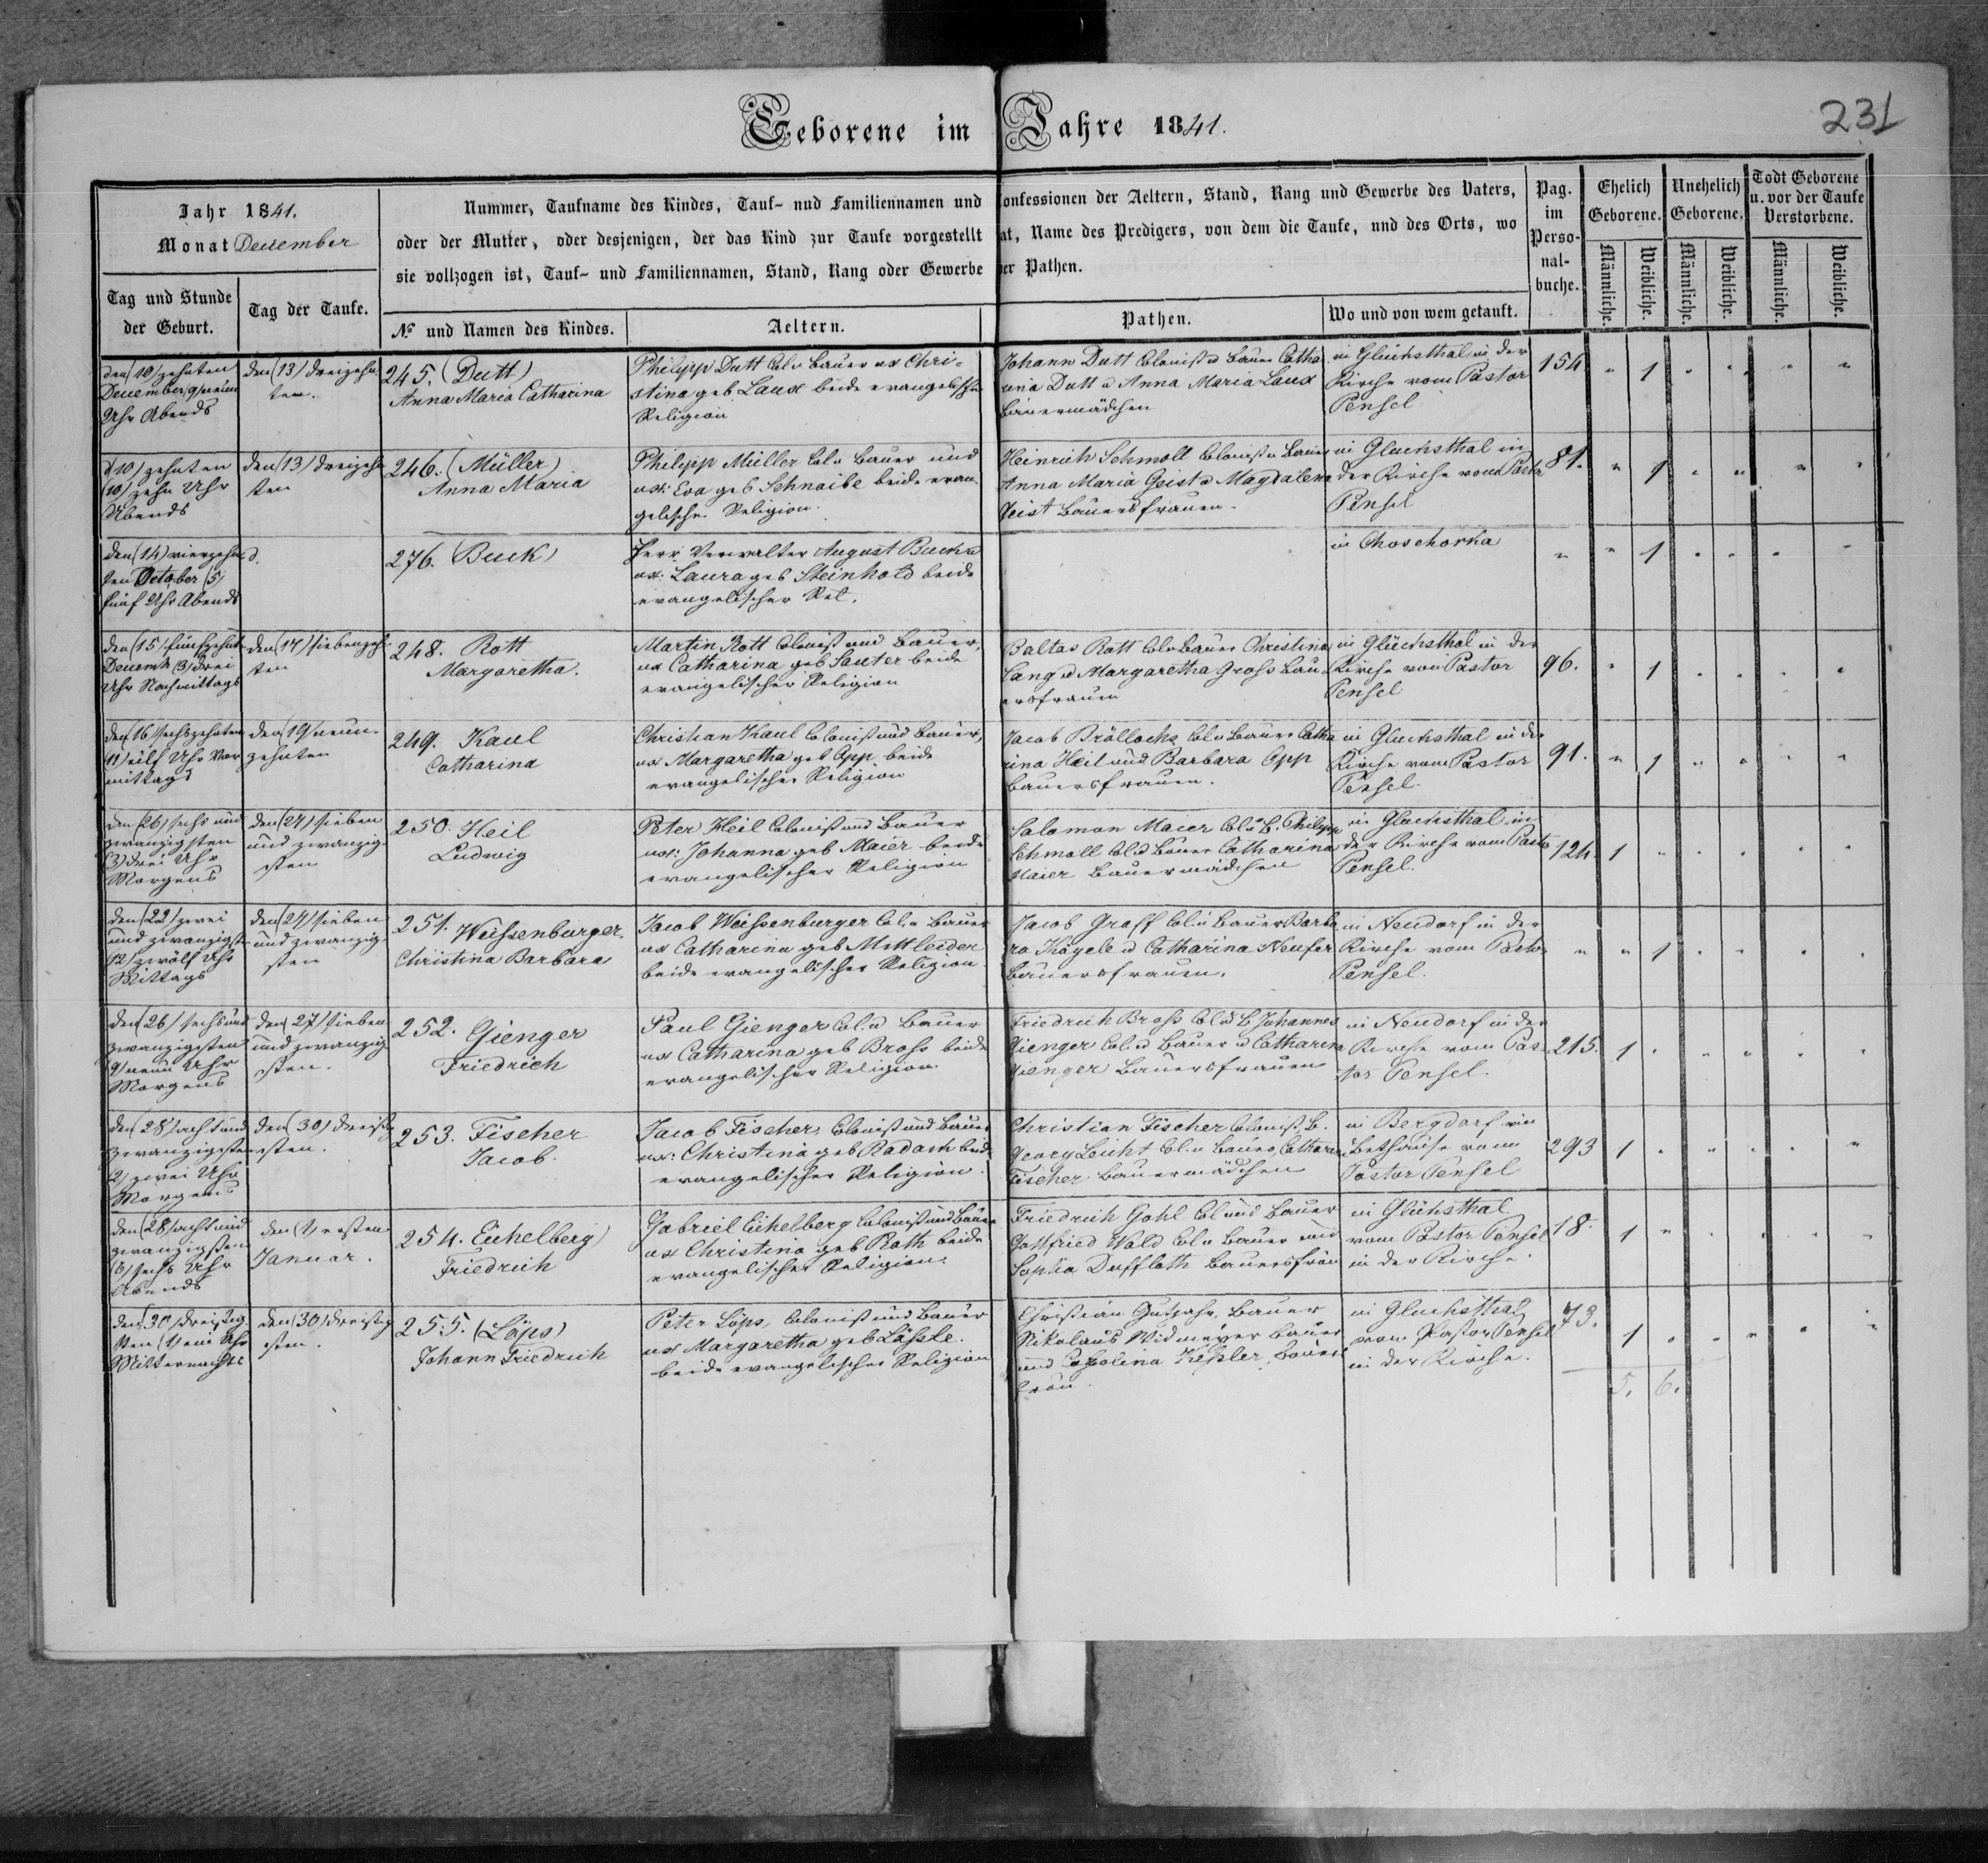 Geborene im Jahre 1841.
231
Jahr 1841.
Monat December
Nummer, Taufname des Kindes, Tauf- und Familiennamen und Confessionen der Aeltern, Stand, Rang und Gewerbe des Vaters,
oder der Mutter, oder desjenigen, der das Kind zur Taufe vorgestellt hat, Name des Predigers, von dem die Taufe, und des Orts, wo
sie vollzogen ist, Tauf- und Familiennamen, Stand, Rang oder Gewerbe der Pathen.
Pag. im Perso-nal-buche.
Ehelich Geborene.
Unehelich Geborene.
Todt Geborene u. vor der Taufe Verstorbene.
Männliche. Weibliche. Männliche. Weibliche. Männliche. Weibliche.
Tag und Stunde der Geburt.
Tag der Taufe.
№ und Namen des Kindes.
Aeltern.
Pathen.
Wo und von wem getauft.
den (10) zehnten
December (9) neun
Uhr Abends
den (13) dreizehn
ten.
245. (Dutt)
Anna Maria Catharina
Philipp Dutt Col u Bauer ux Chri-
stina geb Laux beide evangelischer
Religion
Johann Dutt Colonist u Bauer Catha
rina Dutt u Anna Maria Laux
Bauermädchen
in Glücksthal in der
Kirche vom Pastor
Pensel
154 " 1 " " " "
d (10) zehnten
(10) zehn Uhr
Abends
den (13) dreizehn
ten
246. (Müller)
Anna Maria
Philipp Müller Col u Bauer und
ux: Eva geb Schnaibe beide evan
gelischer Religion.
Heinrich Schmoll Colonist u Bauer
Anna Maria Geist u Magdalena
Geist Bauersfrauen.
in Glücksthal in
der Kirche vom Pastor
Pensel
81. " 1 " " " "
den (14) vierzehn
ten October (5)
fünf Uhr Abends
d.
276. (Buck)
Herr Verwalter August Buck u
ux: Laura geb Steinhold beide
evangelischer Rel.
in Choschorka
" " 1 " " " "
den (15) fünfzehnten
Decemb (3) drei
Uhr Nachmittags
den (17) siebenzehn
ten
248. Rott
Margaretha.
Martin Rott Colonist und Bauer,
ux Catharina geb Sauter beide
evangelischer Religion
Baltas Rott Col u Bauer Christina
Lang u Margaretha Gross Bau-
ersfrauen
in Glücksthal in der
Kirche vom Pastor
Pensel
96. " 1 " " " "
den (16) sechszehnten
(11) eilf Uhr Vor
mittags
den (19) neun-
zehnten
249. Kaul
Catharina
Christian Kaul Colonist und Bauer,
ux Margaretha geb Opp beide
evangelischer Religion
Jacob Bröllochs Col u Bauer Catha
rina Heil und Barbara Opp
Bauersfrauen.
in Glücksthal in der
Kirche vom Pastor
Pensel.
91. " 1 " " " "
den (26) sechs und
zwanzigsten
(3) drei Uhr
Morgens
den (27) sieben
und zwanzig-
sten
250. Heil
Ludwig
Peter Heil Colonist und Bauer
ux: Johanna geb Maier beide
evangelischer Religion
Salomon Maier Col u B. Philipp
Schmoll Col u Bauer Catharina
Maier Bauermädchen
in Glücksthal in
der Kirche vom Pastor
Pensel.
124. 1 " " " " "
den (22) zwei
und zwanzigsten
(12) zwölf Uhr
Mittags
den (27) sieben
und zwanzig-
sten
251. Weissenburger.
Christina Barbara
Jacob Weissenburger Col. u Bauer
ux Catharina geb Mittleider
beide evangelischer Religion
Jacob Graff Col. u Bauer Barba
ra Kögele u Catharina Neufer
Bauersfrauen.
in Neudorf in der
Kirche vom Pastor
Pensel.
" " 1 " " " "
den (26) sechs und
zwanzigsten
9) neun Uhr
Morgens
den (27) sieben
und zwanzig-
sten.
252. Gienger
Friedrich
Paul Gienger Col. u Bauer
ux Catharina geb Bross beide
evangelischer Religion
Friedrich Bross Col u B Johannes
Gienger Col. u Bauer u Catharina
Gienger Bauersfrauen
in Neudorf in der
Kirche vom Pas-
tor Pensel.
215. 1 " " " " "
den (28) acht und
zwanzigsten
2) zwei Uhr
Morgens
den (30) dreißig
sten.
253. Fischer
Jacob.
Jacob Fischer, Colonist und Bauer
ux: Christina geb Radach beide
evangelischer Religion.
Christian Fischer Colonist, B.
Georg Leicht Col. u Bauer, Catharina
Fischer Bauermädchen
in Bergdorf im
Bethause vom
Pastor Pensel
293 1 " " " " "
den (28) acht und
zwanzigsten
(6) sechs Uhr
Abends
den (1) ersten
Januar.
254. Eichelberg)
Friedrich
Gabriel Eichelberg Colonist und Bauer
ux Christina geb Roth beide
evangelischer Religion.
Friedrich Gohl Col und Bauer
Gottfried Wald Col u Bauer und
Sophia Duffloth Bauersfrau
in Glücksthal
vom Pastor Pensel
in der Kirche
18. 1 " " " " "
den (30) dreißig
sten (1) ein Uhr
Mitternachts
den (30) dreißig
sten.
255. (Löps)
Johann Friedrich
Peter Löps, Colonist und Bauer
ux Margaretha geb Lässle.
beide evangelischer Religion
Christian Gutjahr, Bauer
Nikolaus Widmeyer Bauer
und Carolina Kessler, Bauers
frau.
in Glücksthal
vom Pastor Pensel
in der Kirche.
73. 1 " " " " "
5. 6.